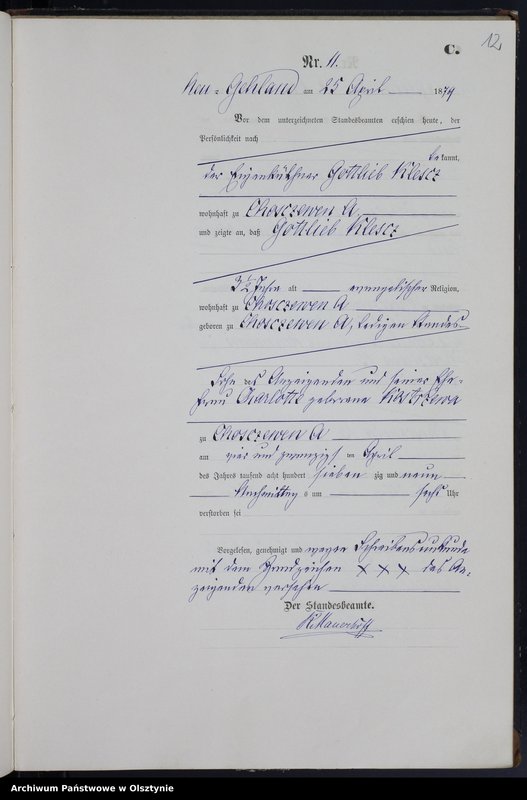 12
C.
Nr. 11.
Neu-Gehland am 25 April 1879
Vor dem unterzeichneten Standesbeamten erschien heute, der
Persönlichkeit nach
bekannt,
der Eigenkäthner Gottlieb Klescz
wohnhaft zu Choszczewen A
und zeigte an, daß Gottlieb Klescz
3 1/2 Jahr alt evangelischer Religion,
wohnhaft zu Choszczewen A
geboren zu Choszczewen A, ledigen Standes
Sohn des Anzeigenden und seiner Ehe-
frau Charlotte geborene Kostrzewa
zu Choszczewen A
am vier und zwanzigsten April
des Jahres tausend acht hundert siebenzig und neun
Nachmittags um sechs Uhr
verstorben sei
Vorgelesen, genehmigt und wegen Schreibensunkunde
mit dem Handzeichen XXX des An-
zeigenden versehen
Der Standesbeamte.
Archiwum Państwowe w Olsztynie